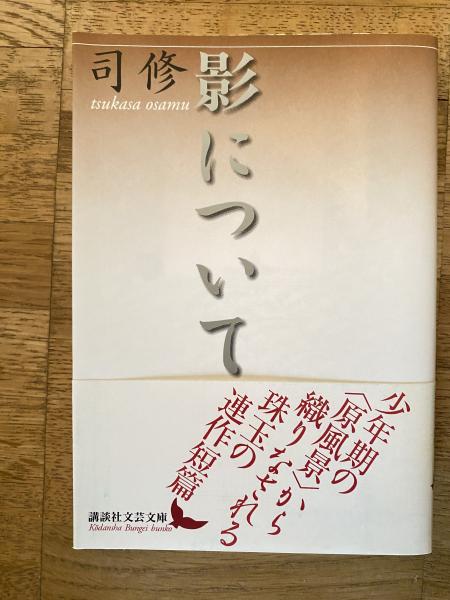 影について
司修
tsukasa osamu
少年期の
〈原風景〉から
織りなされる
珠玉の
連作短篇
講談社文芸文庫
Kōdansha Bungei bunko